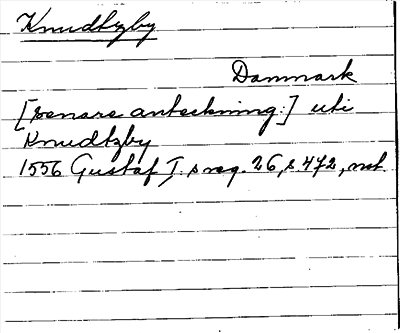 Knudtzby
Danmark
[senare anteckning:] uti
Knudtzby
1556 Gustaf I.s reg. 26, s. 472, not.